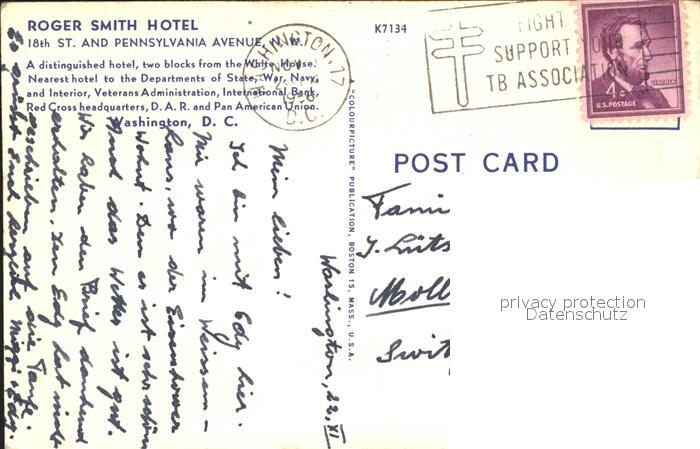 ROGER SMITH HOTEL
18th ST. AND PENNSYLVANIA AVENUE, N. W.
A distinguished hotel, two blocks from the White House.
Nearest hotel to the Departments of State, War, Navy,
and Interior, Veterans Administration, International Bank,
Red Cross headquarters, D. A. R. and Pan American Union.
Washington, D. C.
K7134
WASHINGTON, 17
NOV
1958
D.C.
FIGHT TB
SUPPORT YOUR
TB ASSOCIATION
LINCOLN
4¢
U.S. POSTAGE
A "COLOURPICTURE" PUBLICATION, BOSTON 15, MASS., U.S.A.
POST CARD
Fami
J. Lüts
Moll
Swit
privacy protection
Datenschutz
Washington, 22. XI
Mein lieben!
Ich bin mit Edy hier.
Wir waren im Weissen-
haus, wo der Eisenhower
wohnt. Den es ist sehr schön
Und das Wetter ist gut.
Wir haben den Brief dankend
erhalten. Den Edy hat nicht
geschrieben auf die Taufe.